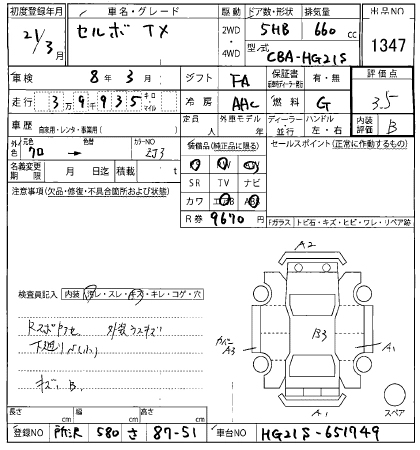 初度登録年月 車名・グレード 駆動 ドア数・形状 排気量 出品NO
21/3月 セルボ TX 2WD・4WD 5HB 660 cc 1347
型式 CBA-HG21S
車検 8年3月 シフト FA 保証書 有・無 評価点
走行 3万9千935 キロ・マイル 冷房 AAC 燃料 G 3.5
車歴 自家用・レンタ・事業用( ) 定員 人 外車モデル 年 ディーラー・並行 ハンドル 左・右 内装評価 B
外色 元色 クロ → 色替 カラーNO ZJ3 装備品(純正品に限る) セールスポイント(正常に作動するもの)
PS PW AW
名義変更期限 月 日迄 積載 t SR TV ナビ
注意事項(欠品・修復・不具合箇所および状態) カワ エアB ABS
R券 9670円
Fガラス トビ石・キズ・ヒビ・ワレ・リペア跡
A2
検査員記入 内装 スレ・キレ・コゲ・穴
外装ウスキズ
B3
カバー A3
A1
下廻りサ(小)
キズ B.
A1
スペア
長さ cm 幅 cm 高さ cm
登録NO 所沢 580 さ 87-51 車台NO HG21S-651749